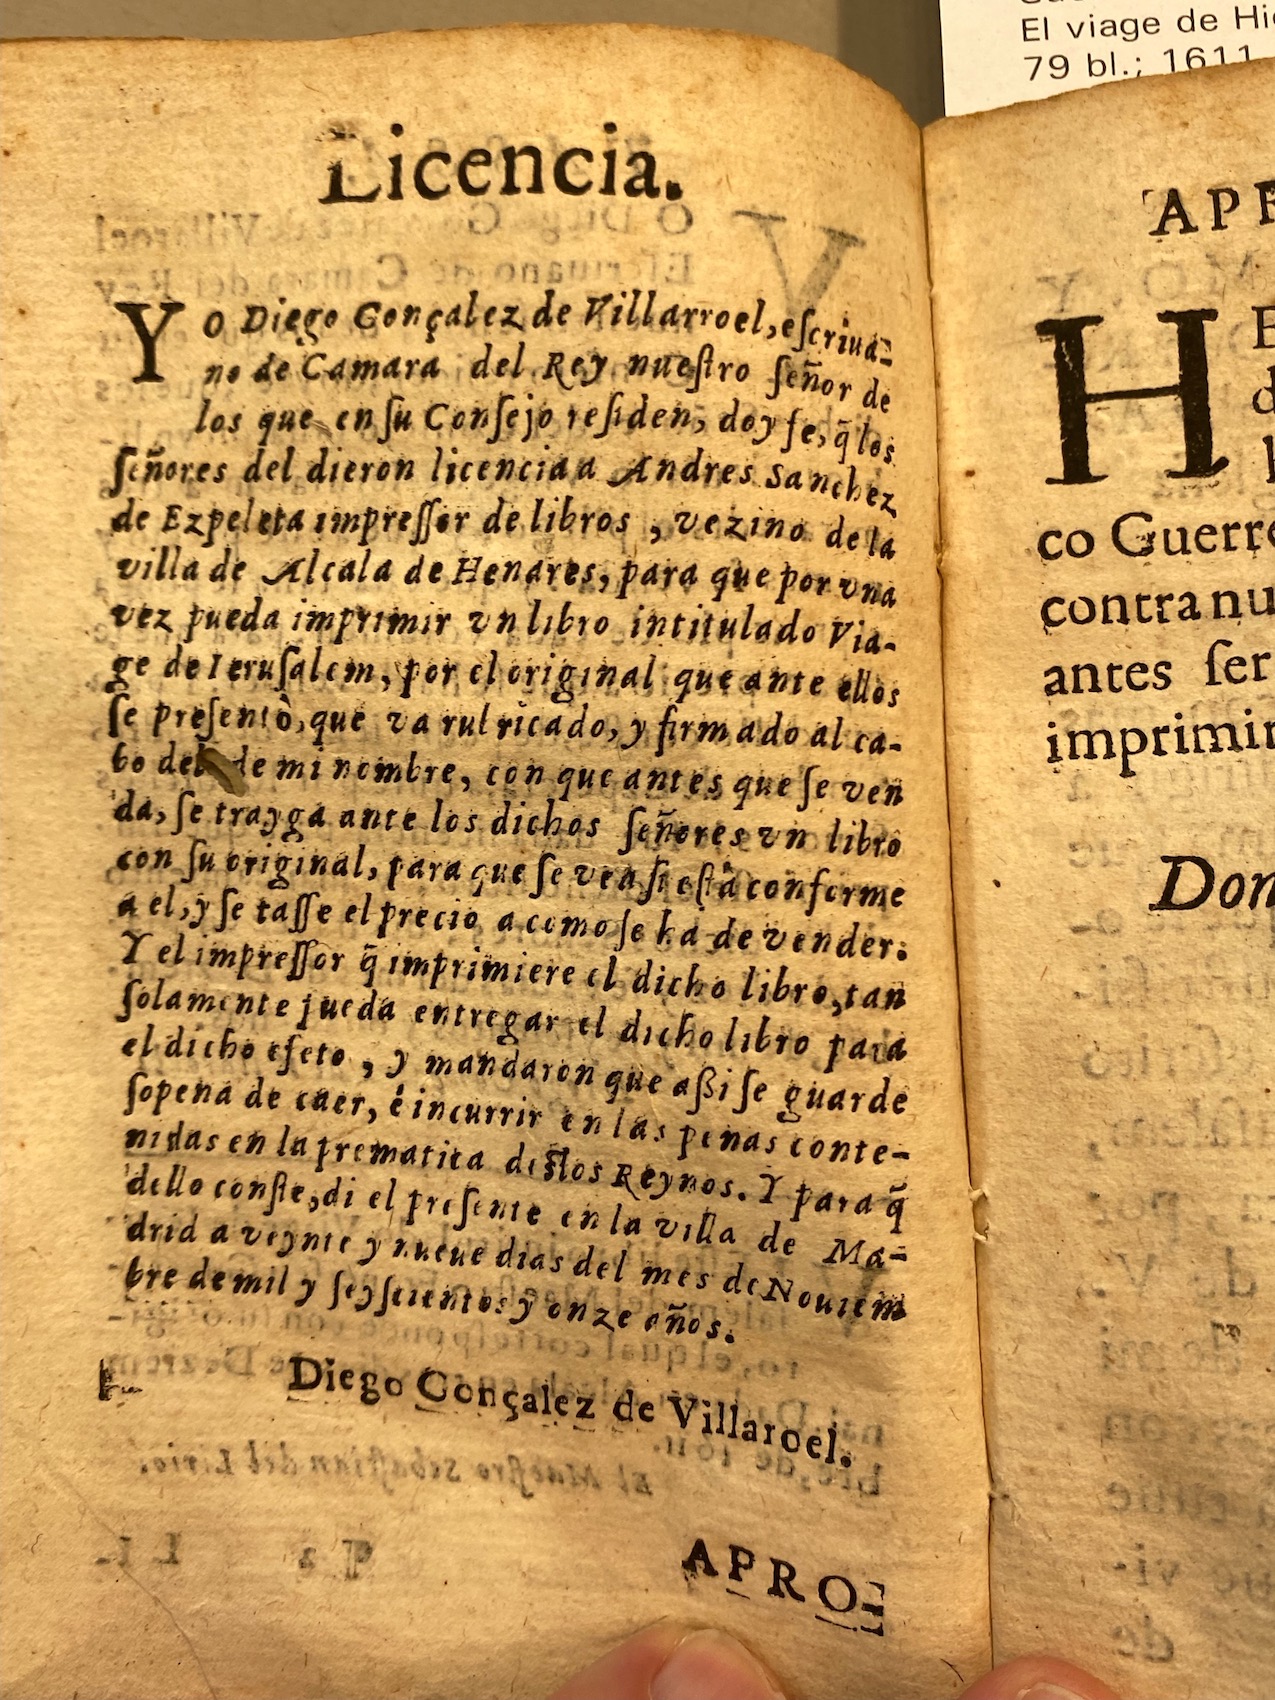 El viage de Hie
79 bl.; 1611
Licencia.
Yo Diego Gonçalez de Villarroel, escriua-
no de Camara del Rey nuestro señor de
los que en su Consejo residen, doy fe, q̃ los
señores del dieron licencia a Andres Sanchez
de Ezpeleta impressor de libros, vezino de la
villa de Alcala de Henares, para que por vna
vez pueda imprimir vn libro intitulado Via-
ge de Ierusalem, por el original que ante ellos
se presentò, que va rubricado, y firmado al ca-
bo del de mi nombre, con que antes que se ven
da, se trayga ante los dichos señores vn libro
con su original, para que se vea si està conforme
a el, y se tasse el precio a como se ha de vender.
Y el impressor q̃ imprimiere el dicho libro, tan
solamente pueda entregar el dicho libro para
el dicho efeto, y mandaron que assi se guarde
sopena de caer, è incurrir en las penas conte-
nidas en la prematica destos Reynos. Y para q̃
dello conste, di el presente en la villa de Ma-
drid a veynte y nueue dias del mes de Nouiem
bre de mil y seyscientos y onze años.
Diego Gonçalez de Villaroel.
APRO-
APR
HE
co Guerre
contra nu
antes ser
imprimir
Don